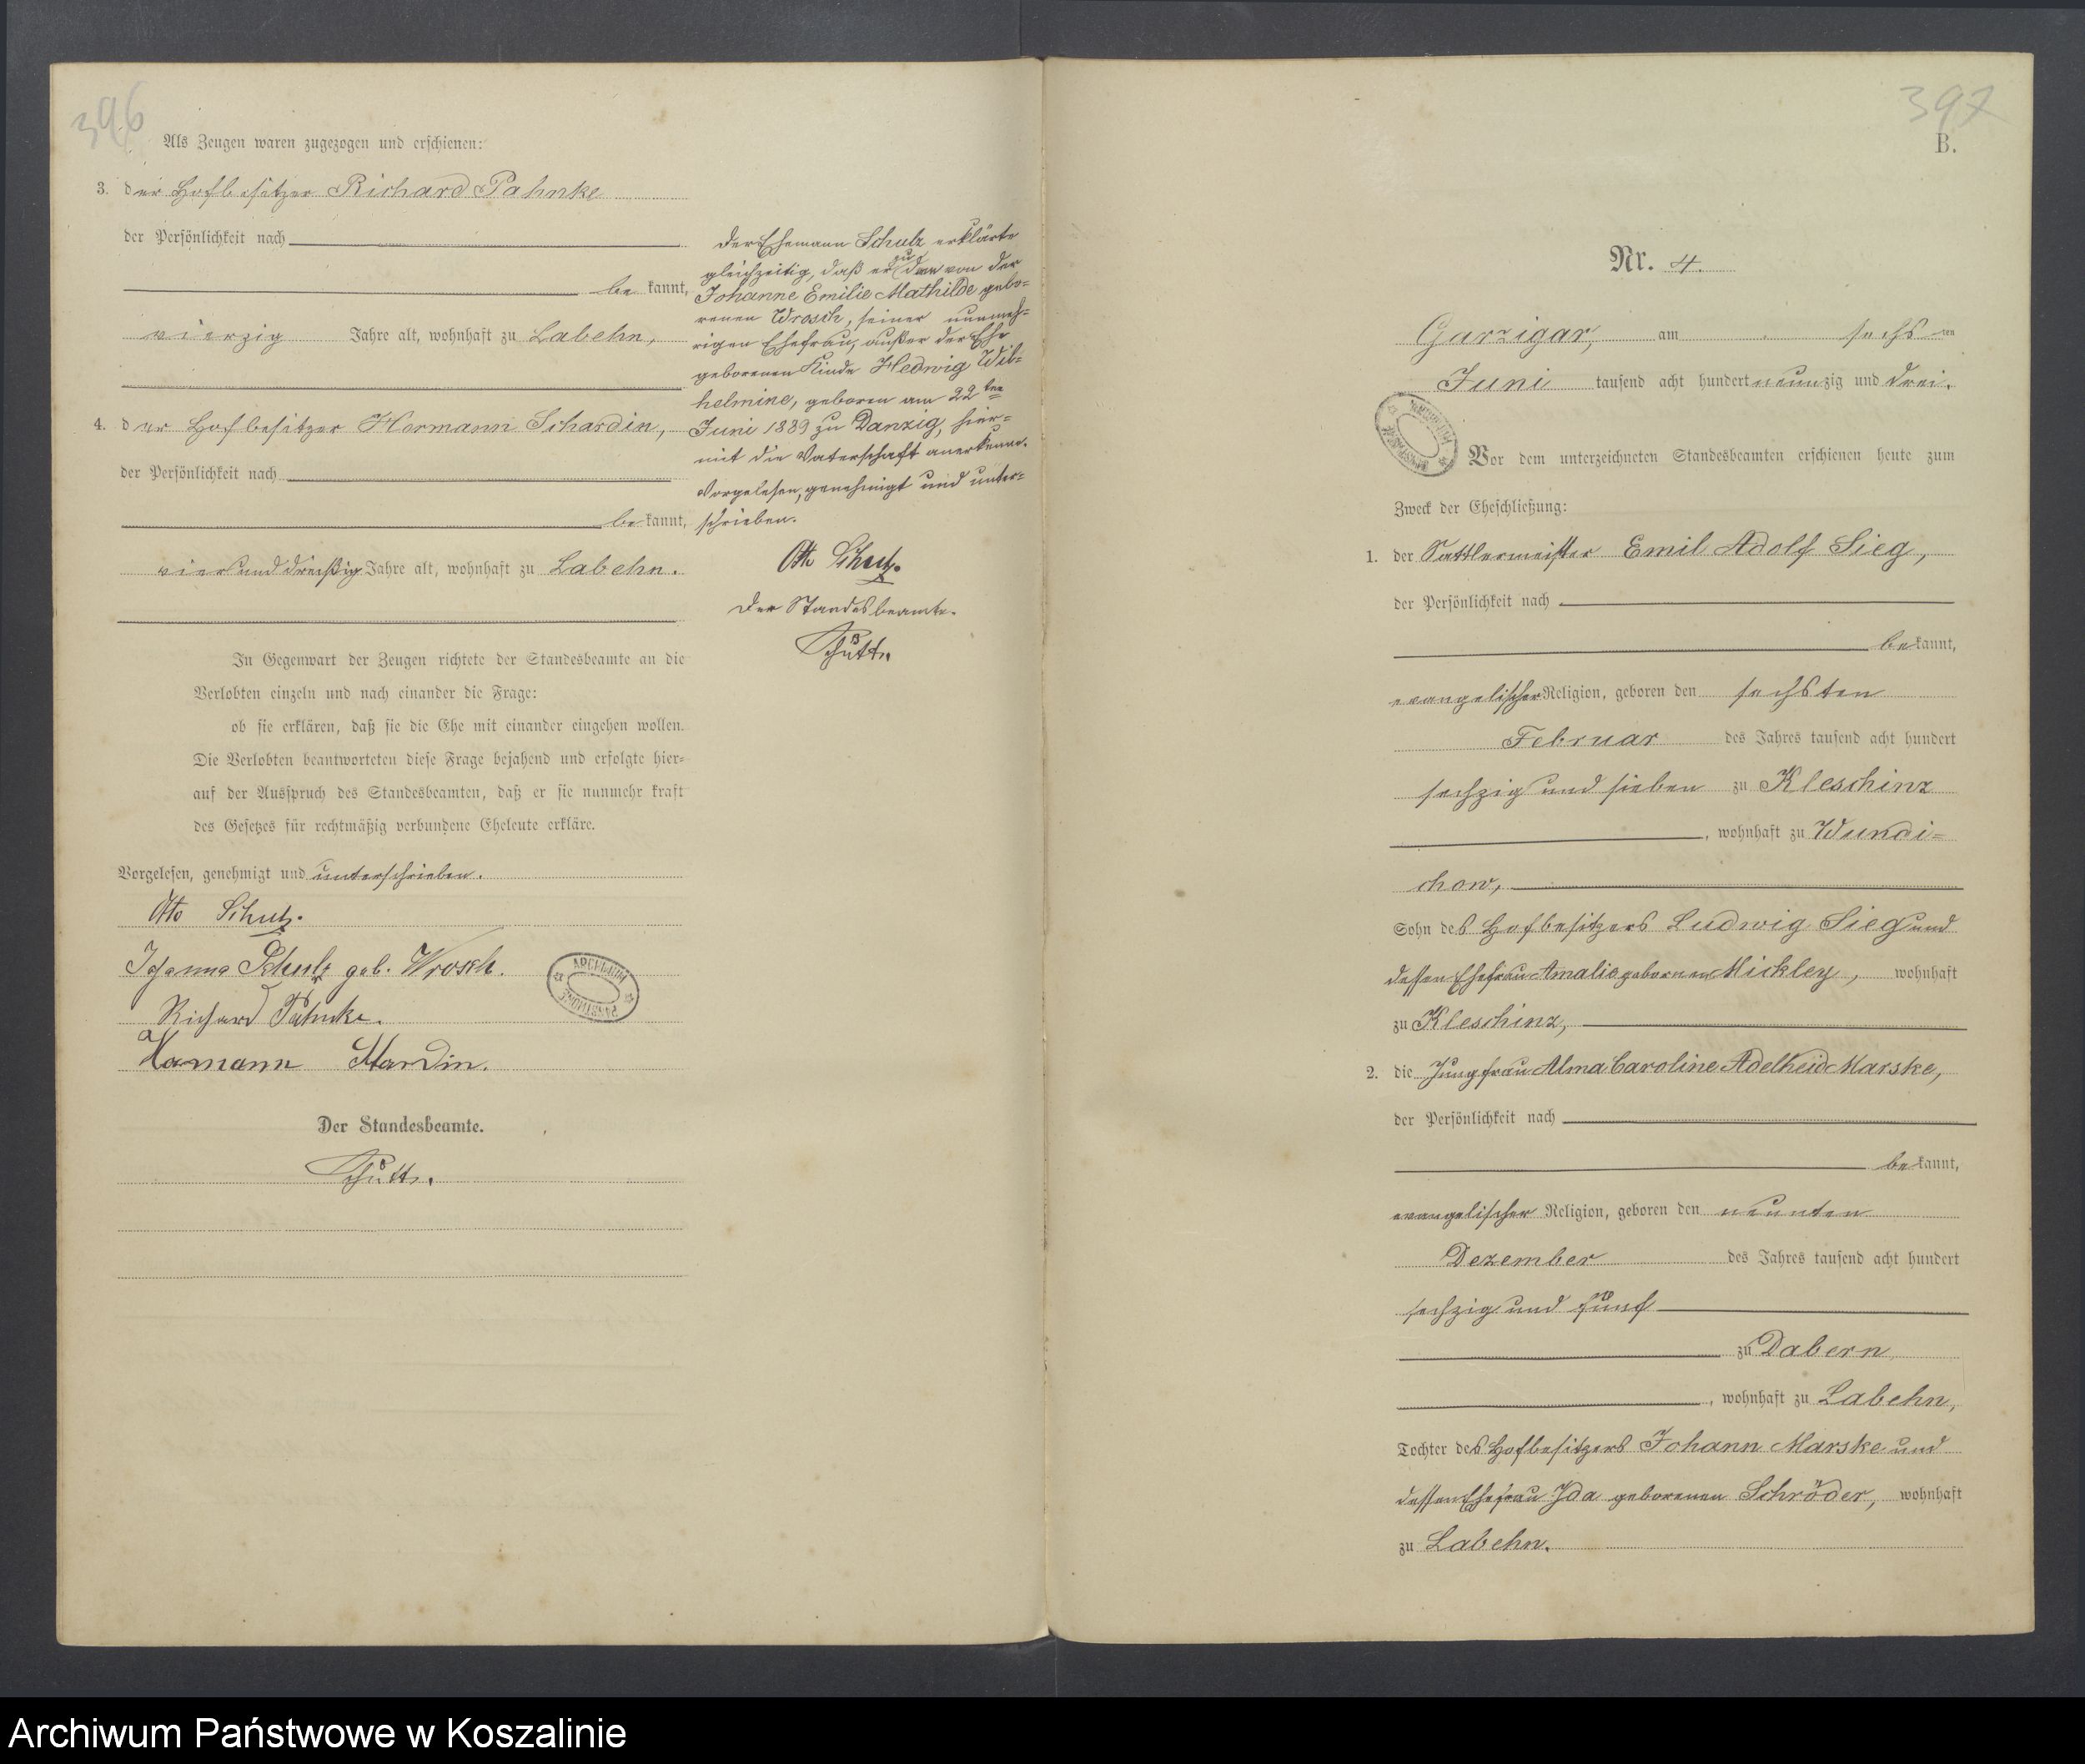 396
Als Zeugen waren zugezogen und erschienen:
3. der Hofbesitzer Richard Pahnke
der Persönlichkeit nach
be kannt,
vierzig Jahre alt, wohnhaft zu Labehn,
4. der Hofbesitzer Hermann Schardin,
der Persönlichkeit nach
be kannt,
vier und dreißig Jahre alt, wohnhaft zu Labehn.
In Gegenwart der Zeugen richtete der Standesbeamte an die
Verlobten einzeln und nach einander die Frage:
ob sie erklären, daß sie die Ehe mit einander eingehen wollen.
Die Verlobten beantworteten diese Frage bejahend und erfolgte hier-
auf der Ausspruch des Standesbeamten, daß er sie nunmehr kraft
des Gesetzes für rechtmäßig verbundene Eheleute erkläre.
Vorgelesen, genehmigt und unterschrieben.
Otto Schulz.
Johanna Schulz geb. Wrosch.
Richard Pahnke.
Hermann Schardin.
Der Standesbeamte.
Schütt.
Der Ehemann Schulz erklärte
gleichzeitig, daß er zu dem von der
Johanne Emilie Mathilde gebo-
renen Wrosch, seiner nunmeh-
rigen Ehefrau, außer der Ehe
geborenen Kinde Hedwig Wil-
helmine, geboren am 22ten
Juni 1889 zu Danzig, hier-
mit die Vaterschaft anerkenne.
Vorgelesen, genehmigt und unter-
schrieben.
Otto Schulz.
Der Standesbeamte.
Schütt.
ARCHIWUM PAŃSTWOWE
397
B.
Nr. 4.
Garzigar, am sechs ten
Juni tausend acht hundert neunzig und drei.
Vor dem unterzeichneten Standesbeamten erschienen heute zum
Zweck der Eheschließung:
1. der Sattlermeister Emil Adolf Sieg,
der Persönlichkeit nach
be kannt,
evangelischer Religion, geboren den sechsten
Februar des Jahres tausend acht hundert
sechzig und sieben zu Kleschinz
, wohnhaft zu Wundi-
chow,
Sohn des Hofbesitzers Ludwig Sieg und
dessen Ehefrau Amalie gebornen Mickley, wohnhaft
zu Kleschinz,
2. die Jungfrau Alma Caroline Adelheid Marske,
der Persönlichkeit nach
be kannt,
evangelischer Religion, geboren den neunten
Dezember des Jahres tausend acht hundert
sechzig und fünf
zu Dabern
, wohnhaft zu Labehn,
Tochter des Hofbesitzers Johann Marske und
dessen Ehefrau Ida geborenen Schröder, wohnhaft
zu Labehn.
Archiwum Państwowe w Koszalinie